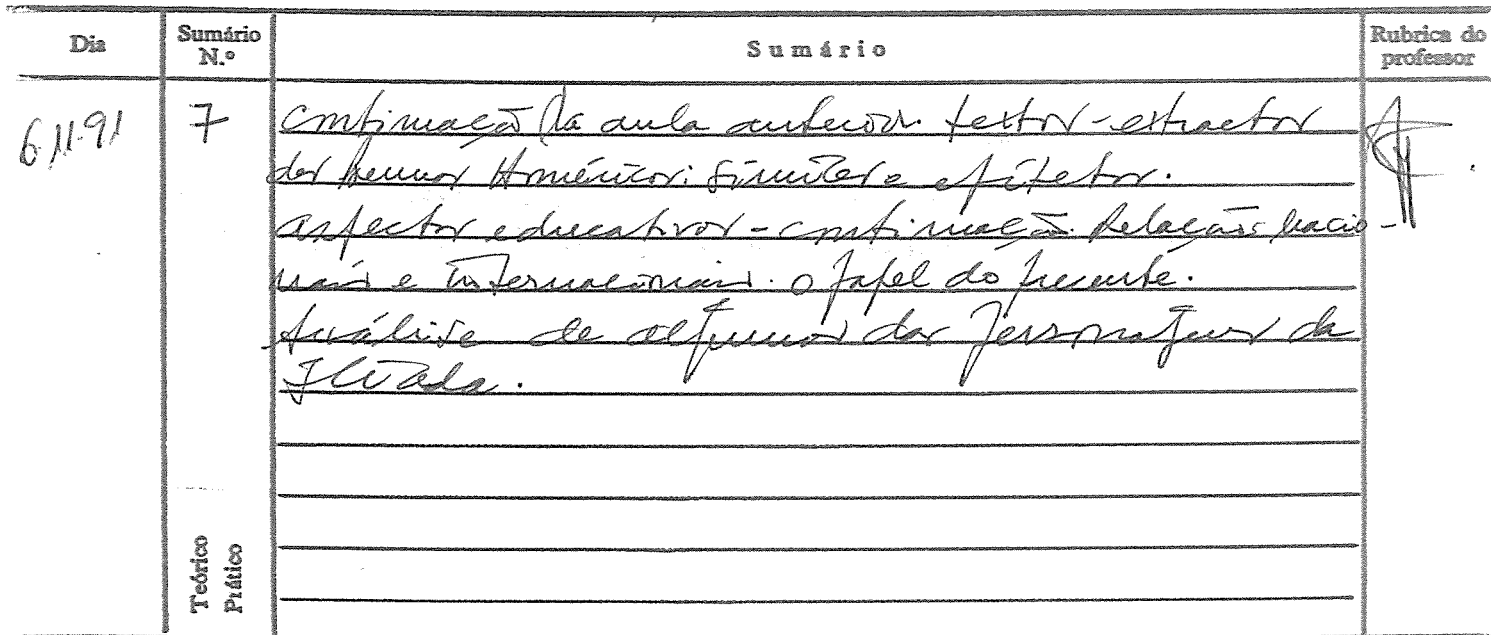 Dia
Sumário
N.º
Sumário
Rubrica do
professor
6.11.91
7
Continuação da aula anterior. textos - extractos
dos Poemas Homéricos: símiles e epítetos.
aspectos educativos - continuação. Relações nacio-
nais e internacionais. o papel do presente.
Análise de algumas das personagens da
Ilíada.
Teórico
Prático